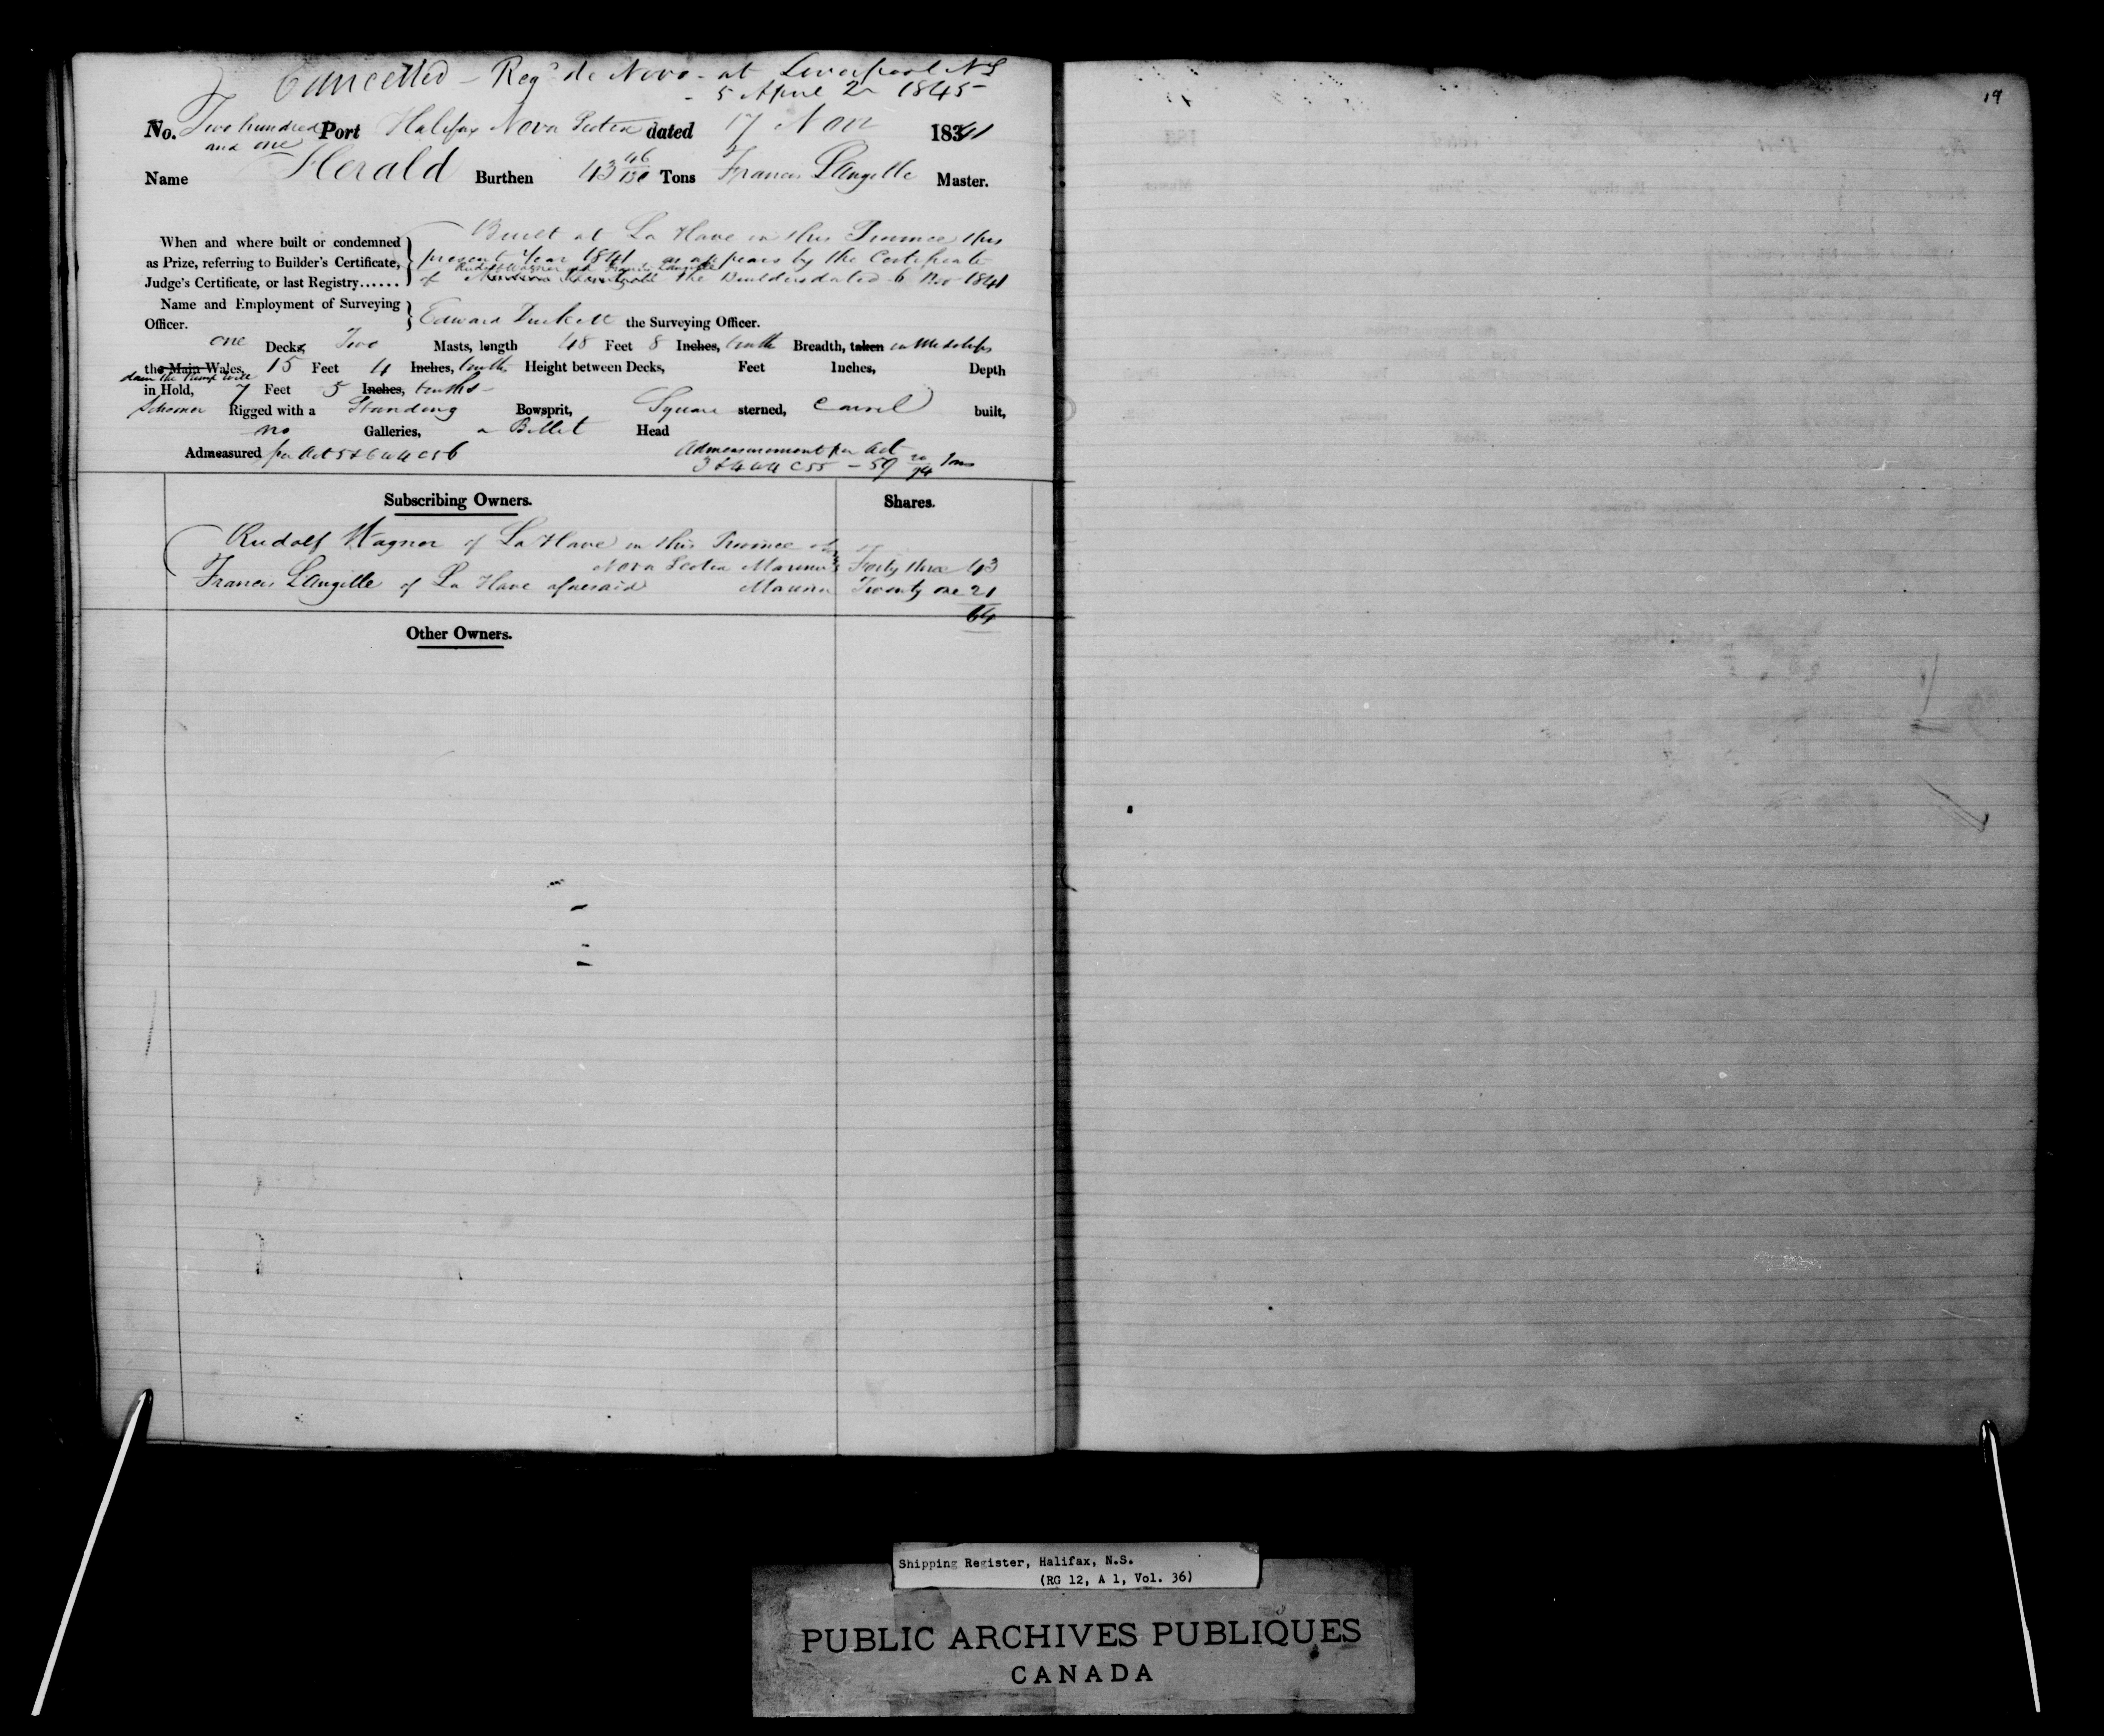 Cancelled - Regd de Novo - at Liverpool NS
- 5 April 1845
19
No. Two hundred Port Halifax Nova Scotia dated 17 Nov 1841
and one
Name Herald Burthen 43 46/130 Tons Francis Langille Master.
Built at La Have in this Province this
When and where built or condemned
present Year 1841 as appears by the Certificate
as Prize, referring to Builder's Certificate,
Rudolf Wagner and Francis Langille
Judge's Certificate, or last Registry...... of the Builders dated 6 Nov 1841
Name and Employment of Surveying
Officer. Edward Duckett the Surveying Officer.
one Decks, Two Masts, length 48 Feet 8 Inches, tenths Breadth, taken in Midships
the Main Wales, 15 Feet 4 Inches, tenths Height between Decks, Feet Inches, Depth
in Hold, 7 Feet 5 Inches, tenths -
Schooner Rigged with a Standing Bowsprit, Square sterned, Carvel built,
no Galleries, a Billet Head
Admeasured per Act 5 & 6 W 4 C 56 Admeasurement per Act
3 & 4 W 4 C 55 - 59 Tons
Subscribing Owners. Shares.
Rudolf Wagner of La Have in this Province of
Nova Scotia Mariner Forty three 43
Francis Langille of La Have aforesaid Mariner Twenty one 21
64
Other Owners.
Shipping Register, Halifax, N.S.
(RG 12, A 1, Vol. 36)
PUBLIC ARCHIVES PUBLIQUES
CANADA